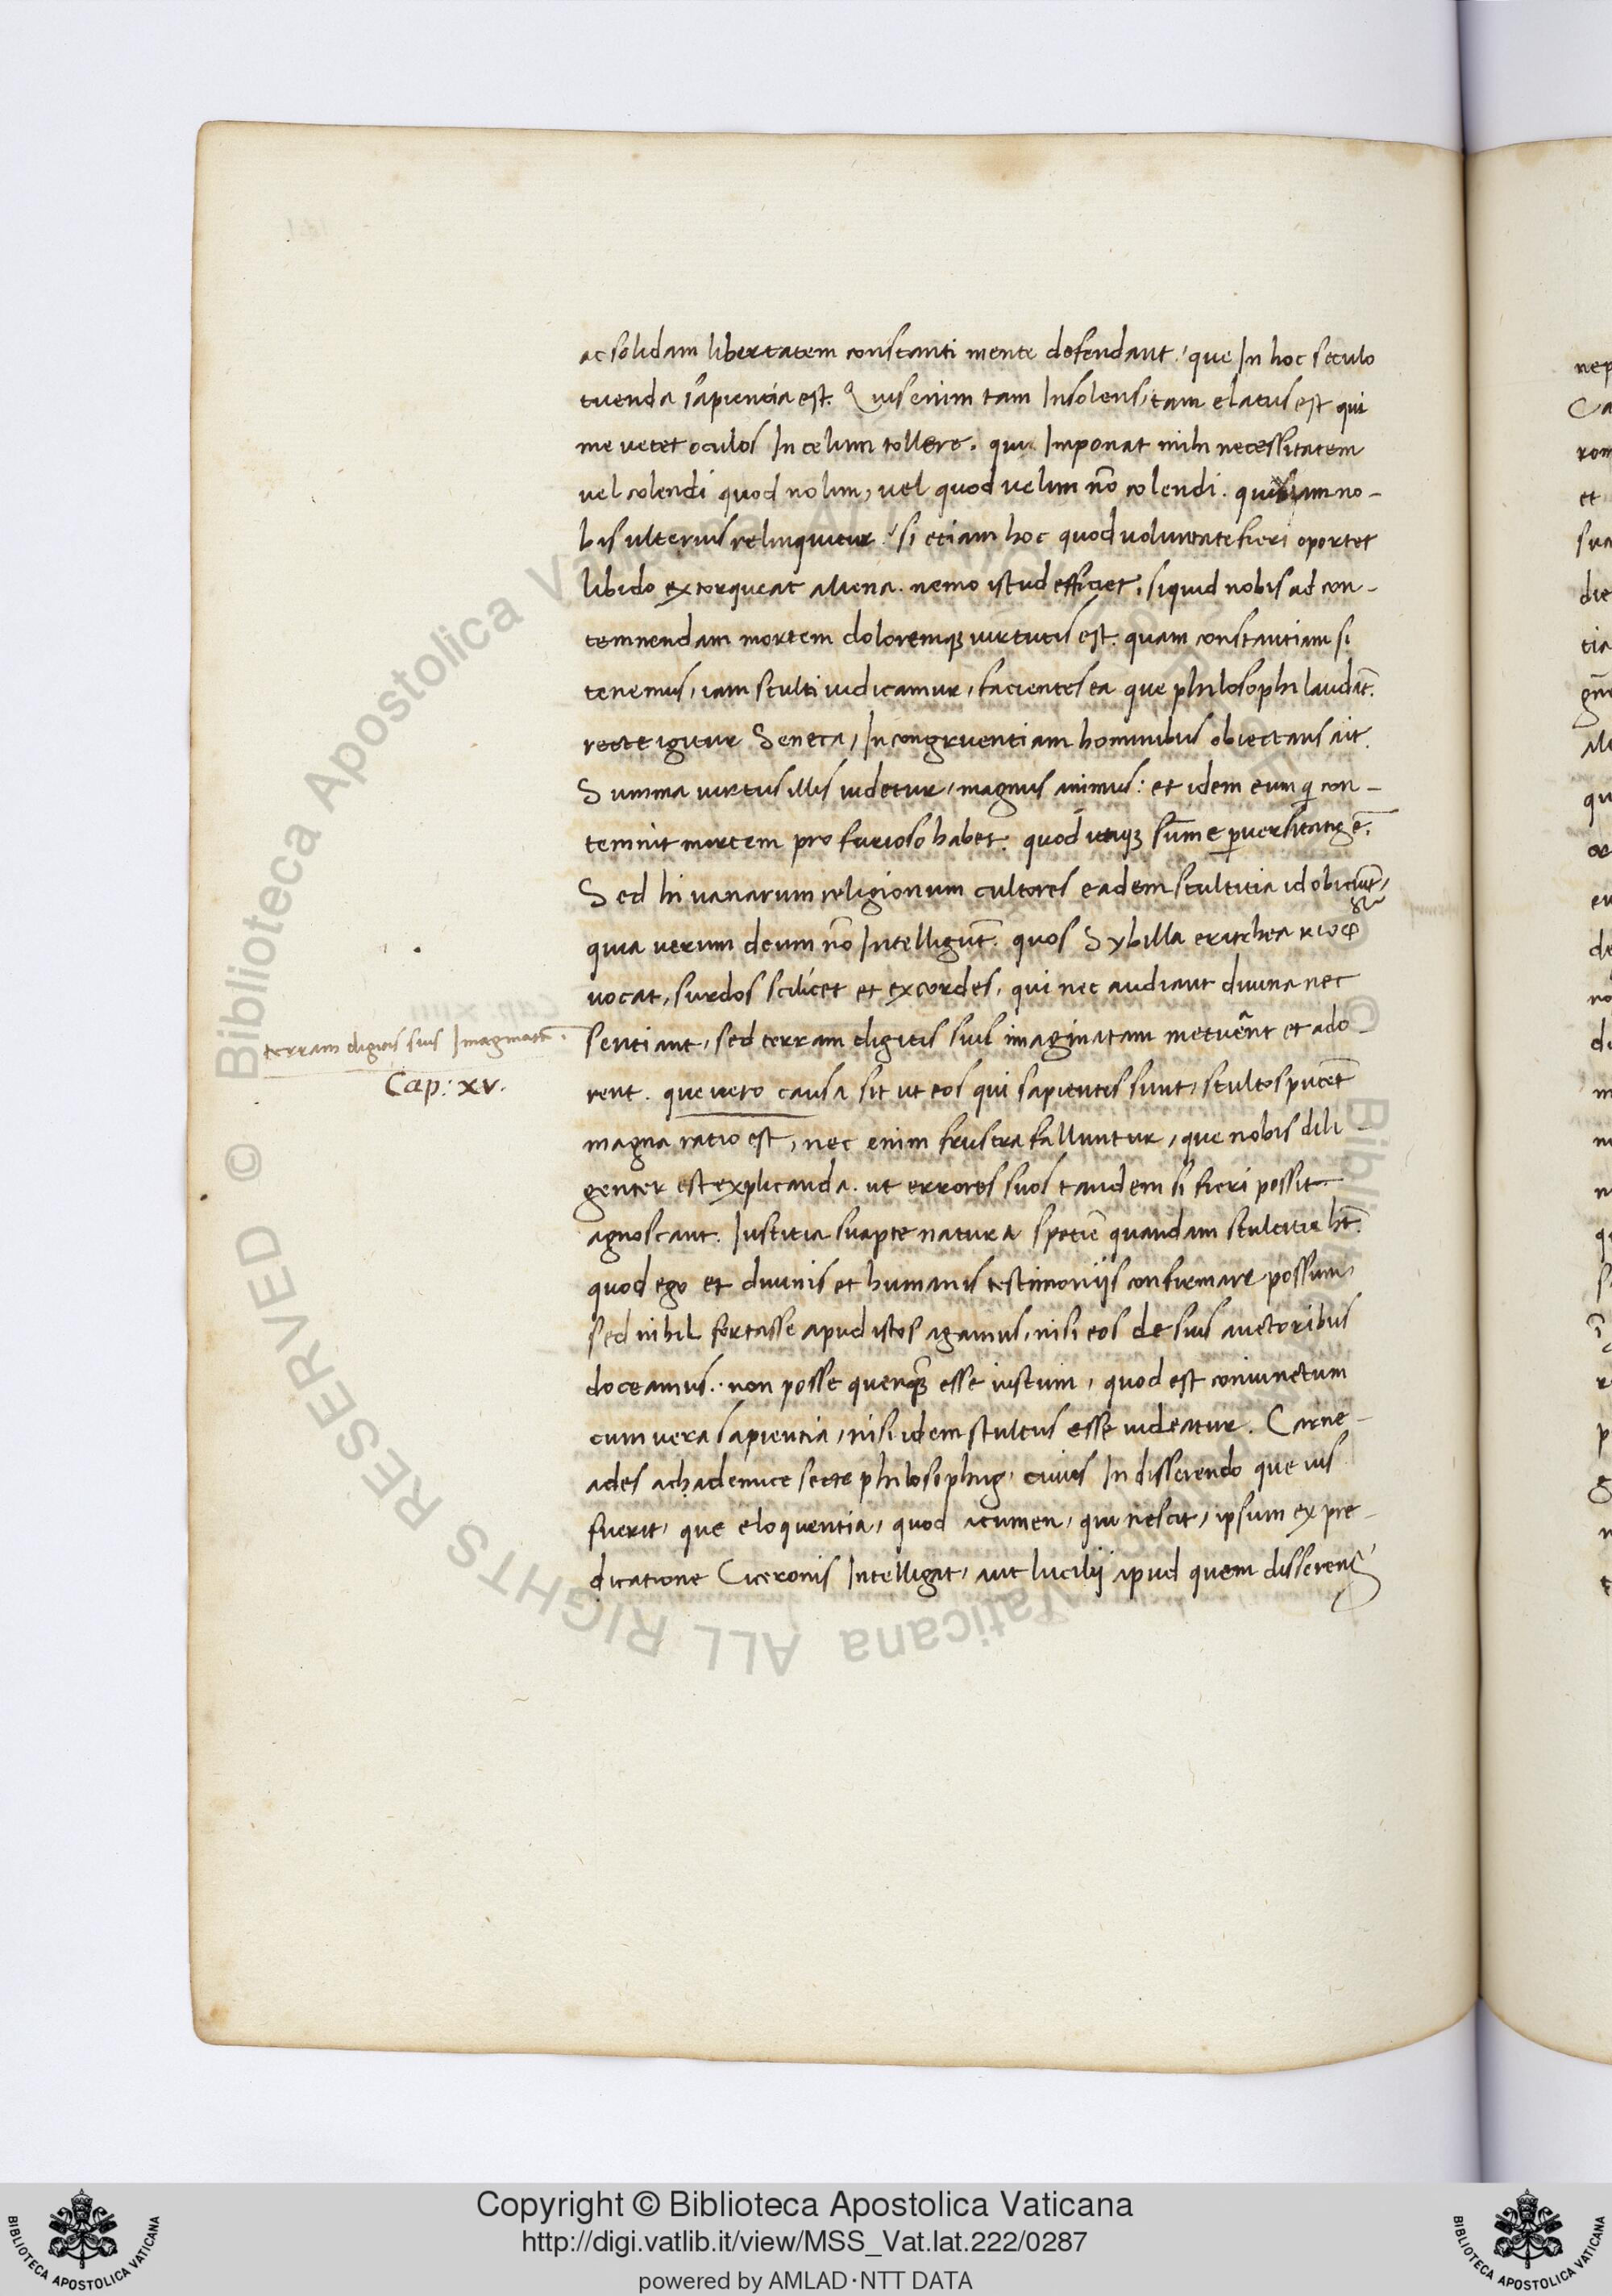 ac solidam libertatem constanti mente defendant. que In hoc seculo
tuenda sapientia est. Quis enim tam Insolens, tam elatus est qui
me vetet oculos In celum tollere. qui Imponat mihi necessitatem
vel colendi quod nolim, vel quod velim nō colendi. quid iam no-
bis ulterius relinquitur. si etiam hoc quod voluntate fieri oportet
libido extorqueat aliena. nemo istud efficiet, siquid nobis ad con-
temnendam mortem doloremqꝫ virtutis est. quam constantiam si
tenemus, iam stulti iudicamur, facientes ea que philosophi laudāt.
recte igitur Seneca, Incongruentiam hominibus obiectans ait.
Summa virtus illis videtur, magnus animus: et idem eum qi con-
temnit mortem pro furioso habet. quod utiqꝫ sūme pversitatis ē.
Sed hi vanarum religionum cultores eadem stultitia id obiciūt,
quia verum deum nō Intelligūt. quos Sybilla erithea κιωφ
vocat, surdos scilicet et excordes, qui nec audiant divina nec
sentiant, sed terram digitis suis imaginatam metuānt et ado-
terram digitis suis Imaginatā.
Cap: xv.
rent. que vero causa sit ut eos qui sapientes sunt, stultos putēt
magna ratio est, nec enim frustra falluntur, que nobis dili-
genter est explicanda. ut errores suos tandem si fieri possit
agnoscant. Iustitia suapte natura speciē quandam stultitie hт̄.
quod ego et divinis et humanis testimoniis confirmare possum,
sed nihil fortasse apud istos agamus, nisi eos de suis auctoribus
doceamus. non posse quenqꝫ esse iustum, quod est coniunctum
cum vera sapientia, nisi idem stultus esse videatur. Carne-
ades achademice secte philosophus, cuius In disserendo que vis
fuerit, que eloquentia, quod acumen, qui nescit, ipsum ex pre-
dicatione Ciceronis Intelligat, aut lucilij apud quem disserens
Copyright © Biblioteca Apostolica Vaticana
http://digi.vatlib.it/view/MSS_Vat.lat.222/0287
powered by AMLAD·NTT DATA
BIBLIOTECA APOSTOLICA VATICANA
BIBLIOTECA APOSTOLICA VATICANA
© Biblioteca Apostolica Vaticana ALL RIGHTS RESERVED